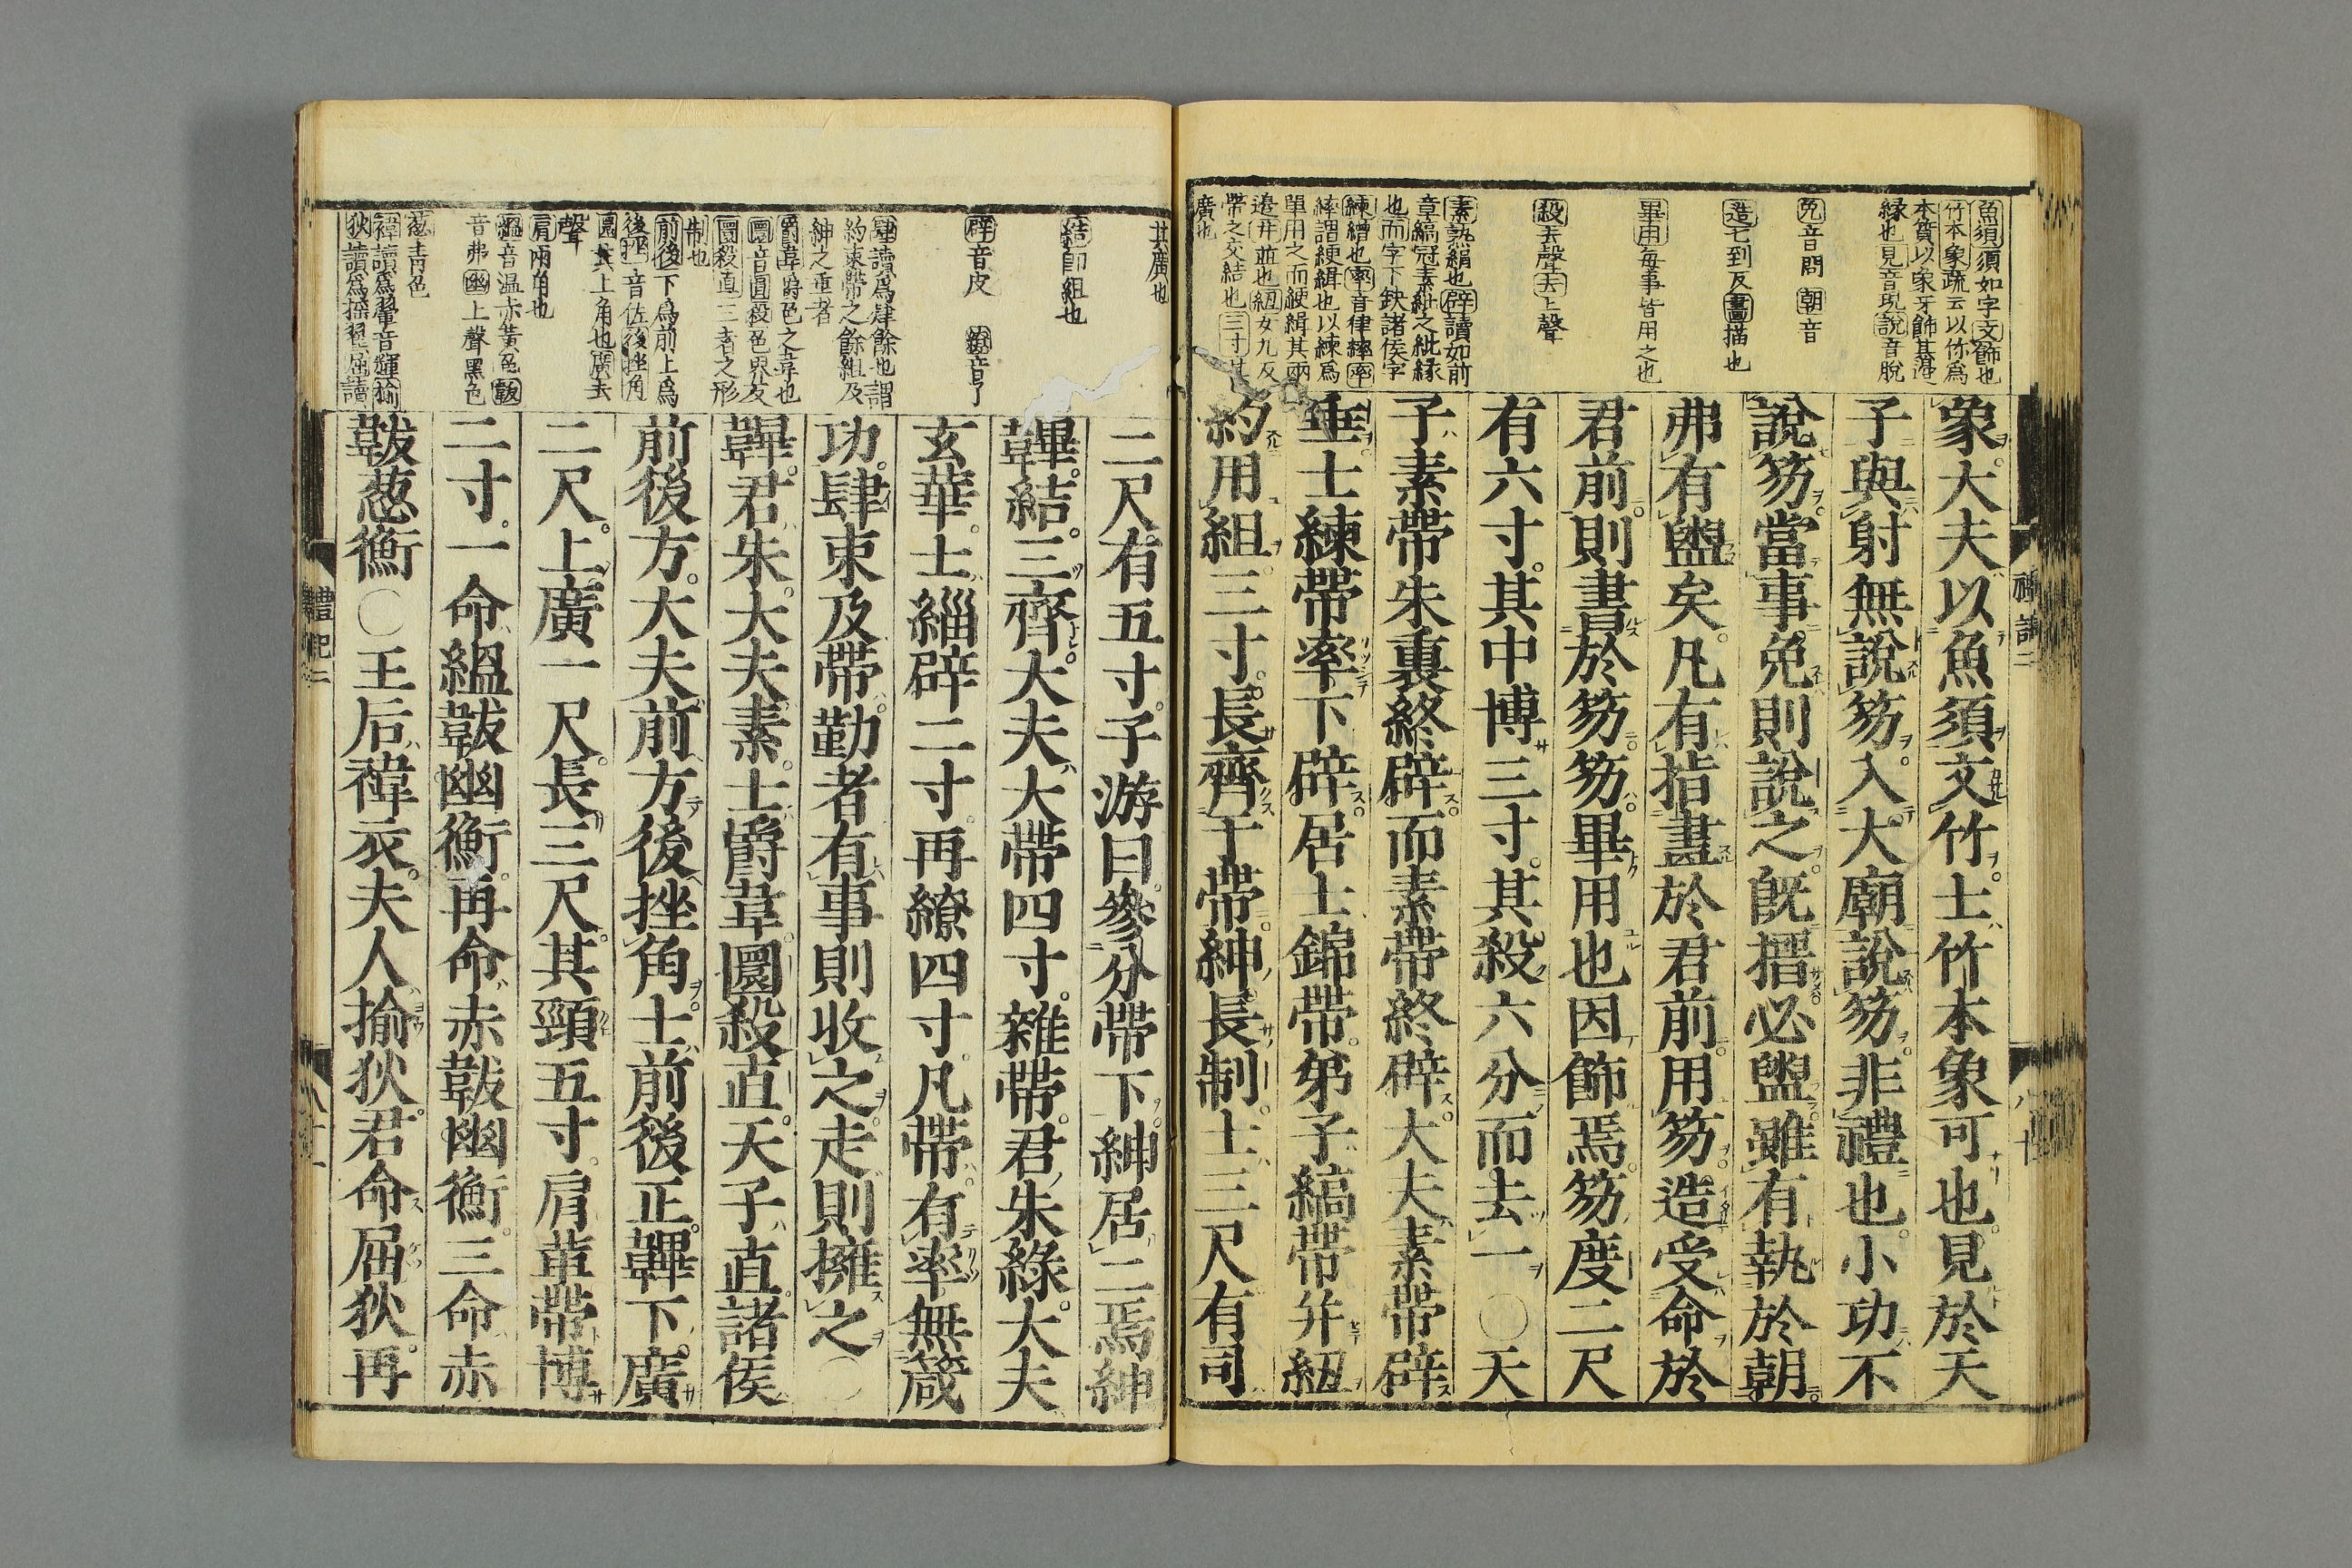 魚須須如字文飾也
竹本象疏云以竹爲
本質以象牙飾其邊
緣也見音現說音脫
免音問 朝音
造七到反畫描也
畢用毎事皆用之也
殺去聲去上聲
素熟絹也辟讀如前
章縞冠素紕之紕緣
也而字下缺諸侯字
練繒也率音律繂率
繂謂緶緝也以練爲
單用之而緶緝其兩
邉幷並也紐女九反
帶之交結也三寸其
廣也
象大夫以魚須文竹士竹本象可也見於天
子與射無說笏入大廟說笏非禮也小功不
說笏當事免則說之旣搢必盥雖有執於朝
弗有盥矣凡有指畫於君前用笏造受命於
君前則書於笏笏畢用也因飾焉笏度二尺
有六寸其中博三寸其殺六分而去一〇天
子素帶朱裏終辟而素帶終辟大夫素帶辟
垂士練帶率下辟居士錦帶弟子縞帶幷紐
約用組三寸長齊于帶紳長制士三尺有司
禮記二
八十
其廣也
結卽組也
辟音皮 繚音了
肆讀爲肄餘也謂
約束帶之餘組及
紳之重者
爵韋爵色之韋也
圜音圓殺色界反
圜殺直三者之形
制也
前後下爲前上爲
後挫音佐後挫角
圜其上角也廣去
聲
肩兩角也
縕音温赤黃色韍
音弗幽上聲黑色
葱青色
褘讀爲翬音輝揄
狄讀爲搖翟屈讀
二尺有五寸子游曰參分帶下紳居二焉紳
韠結三齊大夫大帶四寸雜帶君朱綠大夫
玄華士緇辟二寸再繚四寸凡帶有率無箴
功肆束及帶勤者有事則收之走則擁之〇
韠君朱大夫素士爵韋圜殺直天子直諸侯
前後方大夫前方後挫角士前後正韠下廣
二尺上廣一尺長三尺其頸五寸肩革帶博
二寸一命縕韍幽衡再命赤韍幽衡三命赤
韍葱衡〇王后褘衣夫人揄狄君命屈狄再
禮記二
八十一